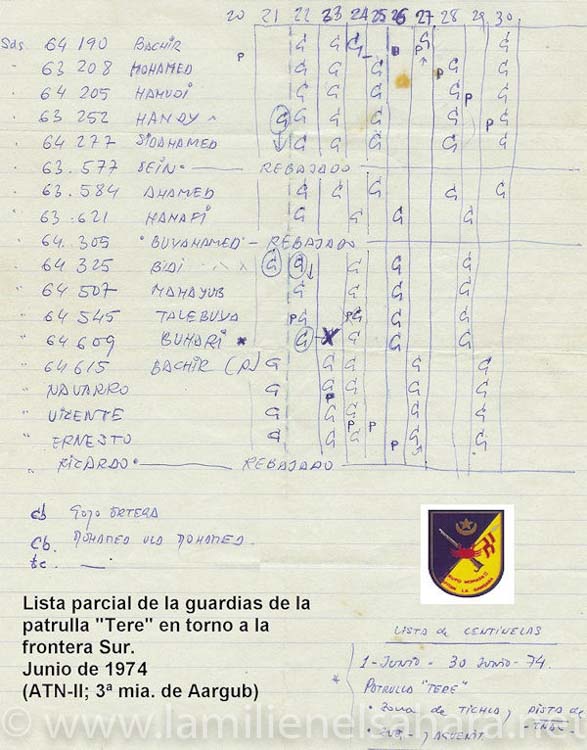 20 21 22 23 24 25 26 27 28 29 30
Sds. 64 190 BACHIR P G G G P G G
" 63 208 MOHAMED G G G G P G
" 64 205 HAMUDI G G G G P G
" 63 252 HANDY G G G G G P G
" 64 277 SIDAHAMED G G G G G
" 63.577 SEIN REBAJADO
" 63.584 AHAMED G G G G G
" 63.621 HANAFI G G G G
" 64.305 BUYAHAMED - REBAJADO
" 64 325 BIDI G G G G G
" 64 507 MAHAYUB G G G G
" 64 545 TALEBUYA P G P G G G
" 64 609 BUHARI * G X G G G
" 64 615 BACHIR (P) G G G G G
" NAVARRO G G G G G
" VICENTE G G P G G G
" ERNESTO G G P G P P G G
" RICARDO REBAJADO
Cb GOYO ORTEGA
Cb. MOHAMED ULD MOHAMED.
Lista parcial de la guardias de la
patrulla "Tere" en torno a la
frontera Sur.
Junio de 1974
(ATN-II; 3ª mia. de Aargub)
LISTA de CENTINELAS
* 1-JUNIO - 30 JUNIO-74.
PATRULLA "TERE"
• Zona de TICHLA y PISTA de
© www.lamilienelsahara.net